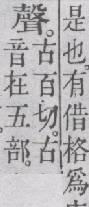 是也。有借格爲
聲。古百切。古
音在五部。